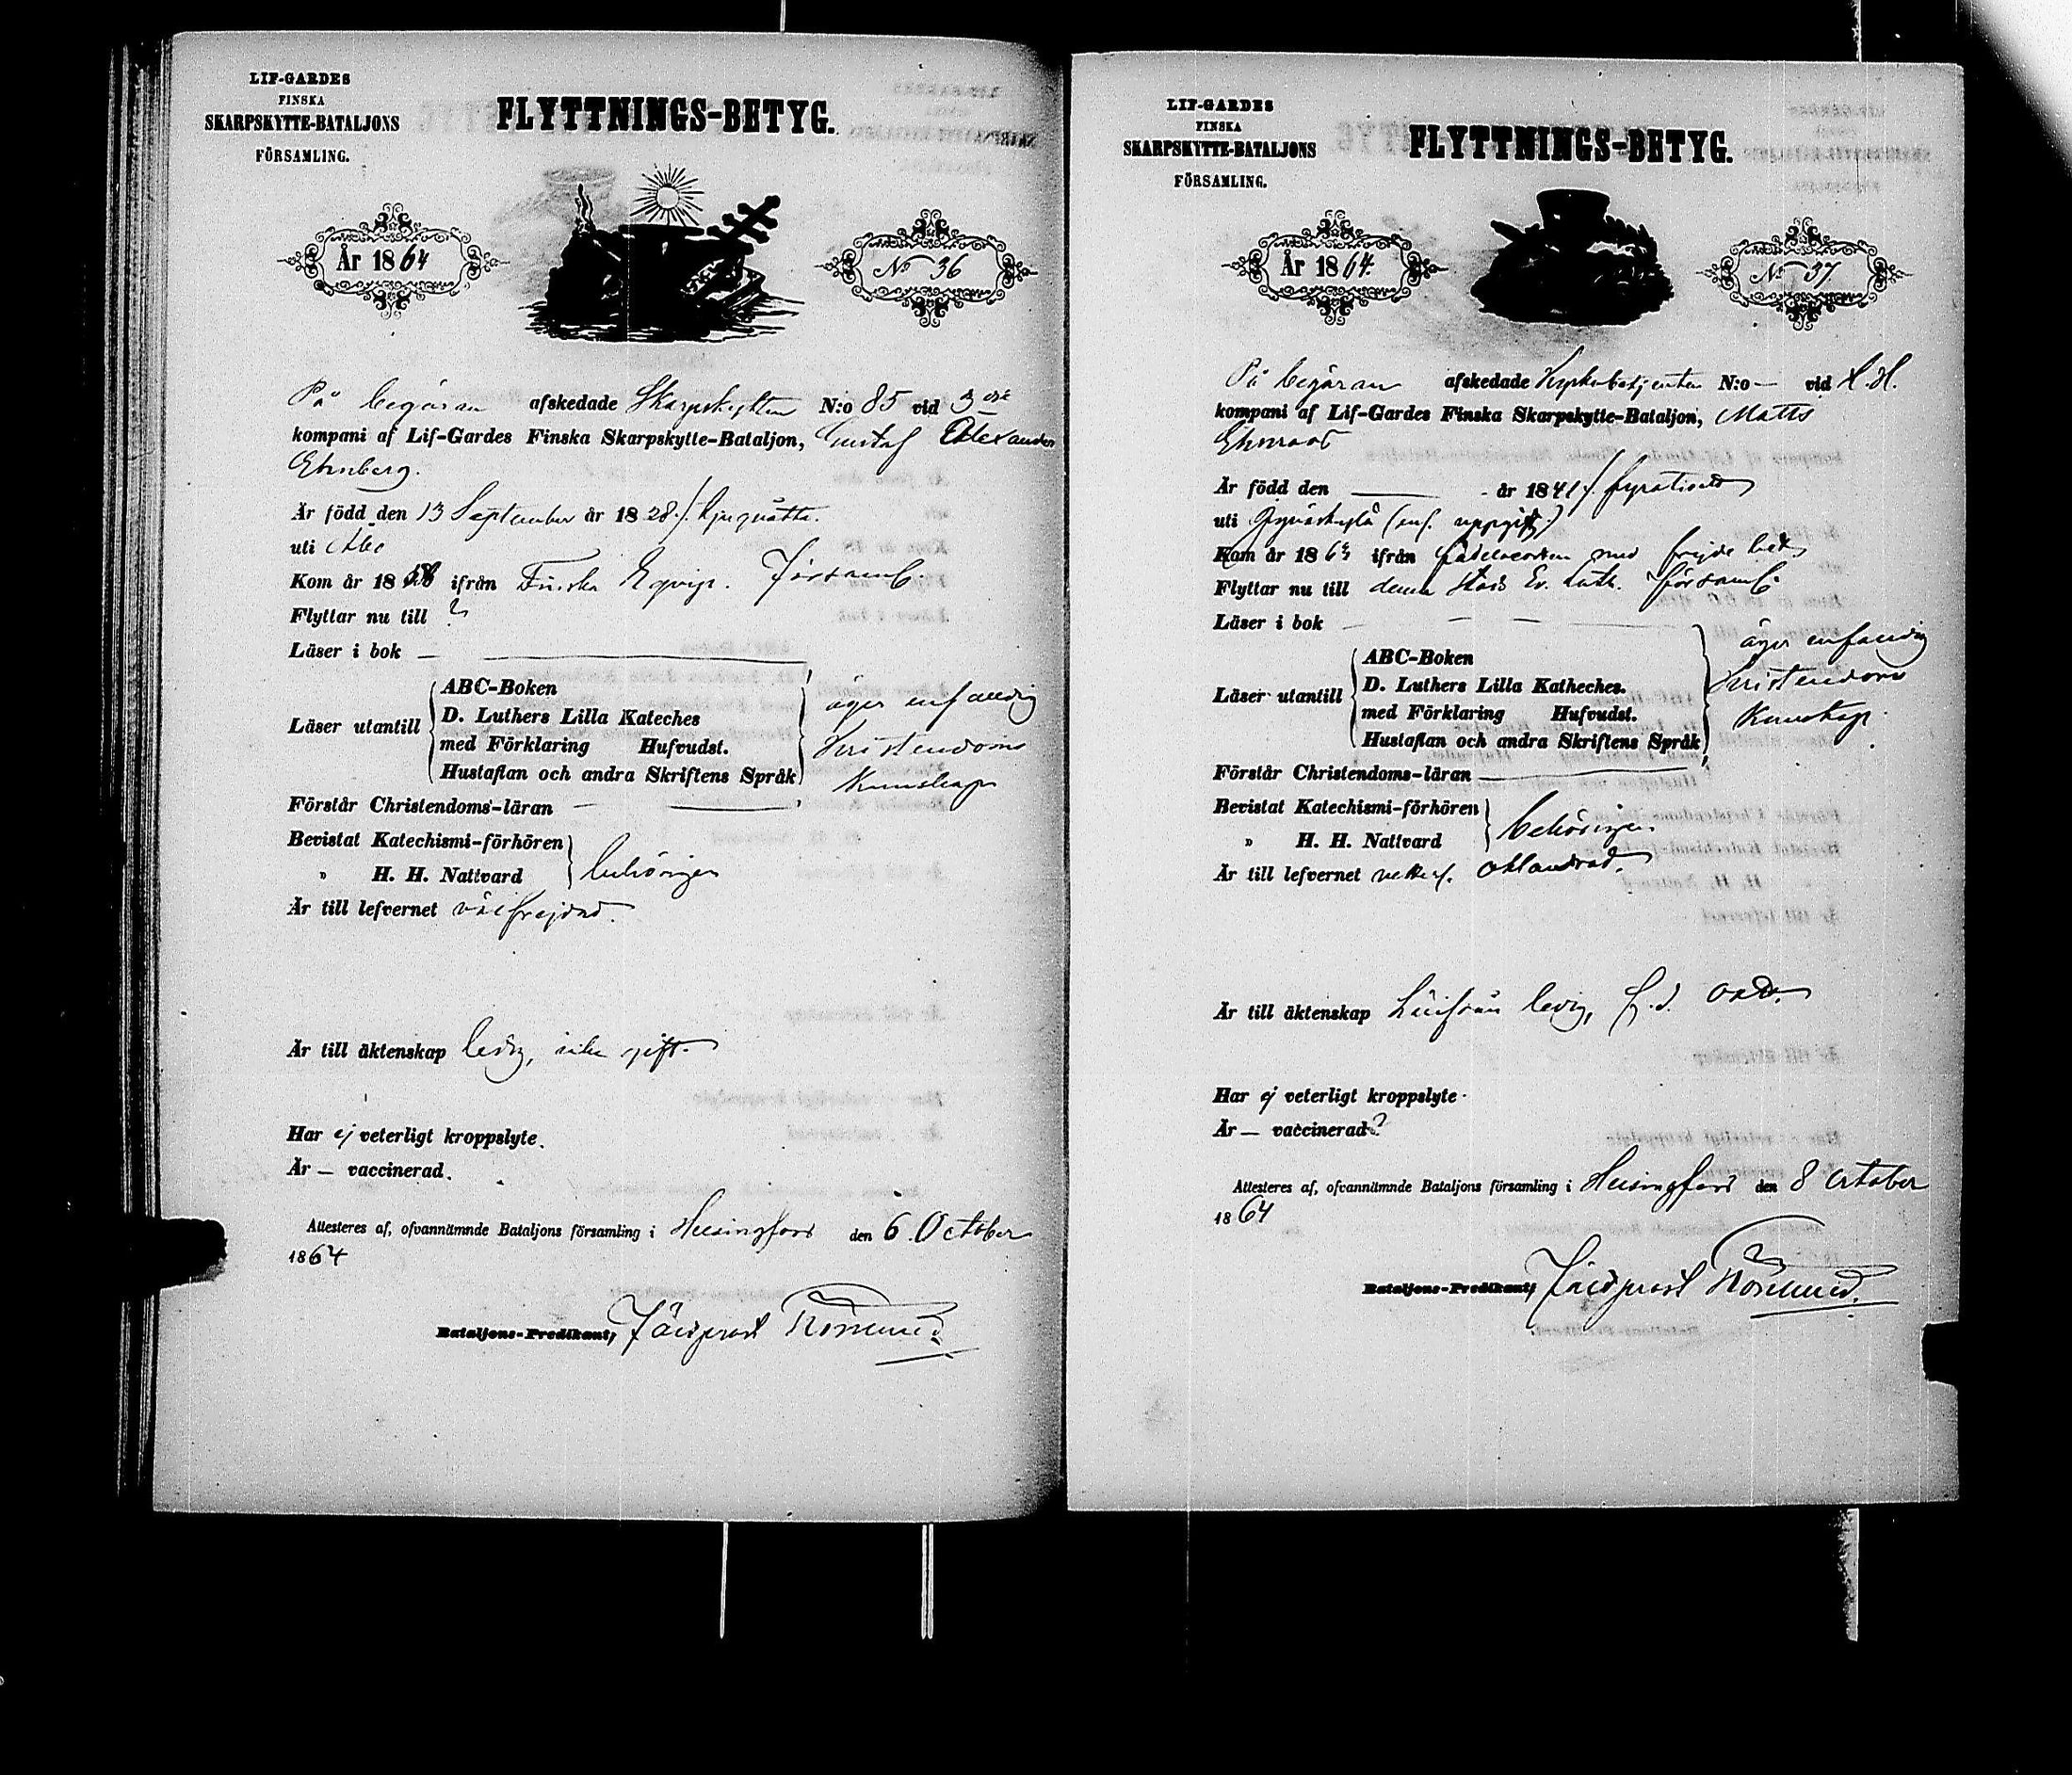 LIF-GARDES
FINSKA
SKARPSKYTTE-BATALJONS
FÖRSAMLING.
FLYTTNINGS-BETYG.
År 1864
No 36
På begäran afskedade Skarpskytten N:o 85 vid 3dje
kompani af Lif-Gardes Finska Skarpskytte-Bataljon, Gustaf Alexander
Ehnberg.
Är född den 13 September år 1828 /. tjuguåtta.
uti Åbo
Kom år 1858 ifrån Finska Eqvip. Församl.
Flyttar nu till ?
Läser i bok —
Läser utantill
ABC-Boken
D. Luthers Lilla Kateches
med Förklaring Hufvudst.
Hustaflan och andra Skriftens Språk
äger enfaldig
Kristendoms
kunskap
Förstår Christendoms-läran —
Bevistat Katechismi-förhören
" H. H. Nattvard
behörigen
Är till lefvernet välfrejdad.
Är till äktenskap ledig, icke gift.
Har ej veterligt kroppslyte.
Är — vaccinerad.
Attesteres af, ofvannämnde Bataljons församling i Helsingfors den 6 October
1864
Bataljons-Predikant, Fältprost
LIF-GARDES
FINSKA
SKARPSKYTTE-BATALJONS
FÖRSAMLING.
FLYTTNINGS-BETYG.
År 1864.
No 37.
På begäran afskedade N:o — vid
kompani af Lif-Gardes Finska Skarpskytte-Bataljon, Matts
Ehnroos
Är född den — år 1841 /. fyrationde
uti (enl. uppgift)
Kom år 1863 ifrån födelseorten med frejdebet.
Flyttar nu till denna stads Ev. Luth. församl.
Läser i bok — — —
Läser utantill
ABC-Boken
D. Luthers Lilla Katheches.
med Förklaring Hufvudst.
Hustaflan och andra Skriftens Språk
äger enfaldig
Kristendoms
kunskap.
Förstår Christendoms-läran —
Bevistat Katechismi-förhören
" H. H. Nattvard
behörigen.
Är till lefvernet veterl. oklandrad.
Är till äktenskap härifrån ledig,
Har ej veterligt kroppslyte.
Är — vaccinerad?
Attesteres af, ofvannämnde Bataljons församling i Helsingfors den 8 October
1864
Bataljons-Predikant, Fältprost